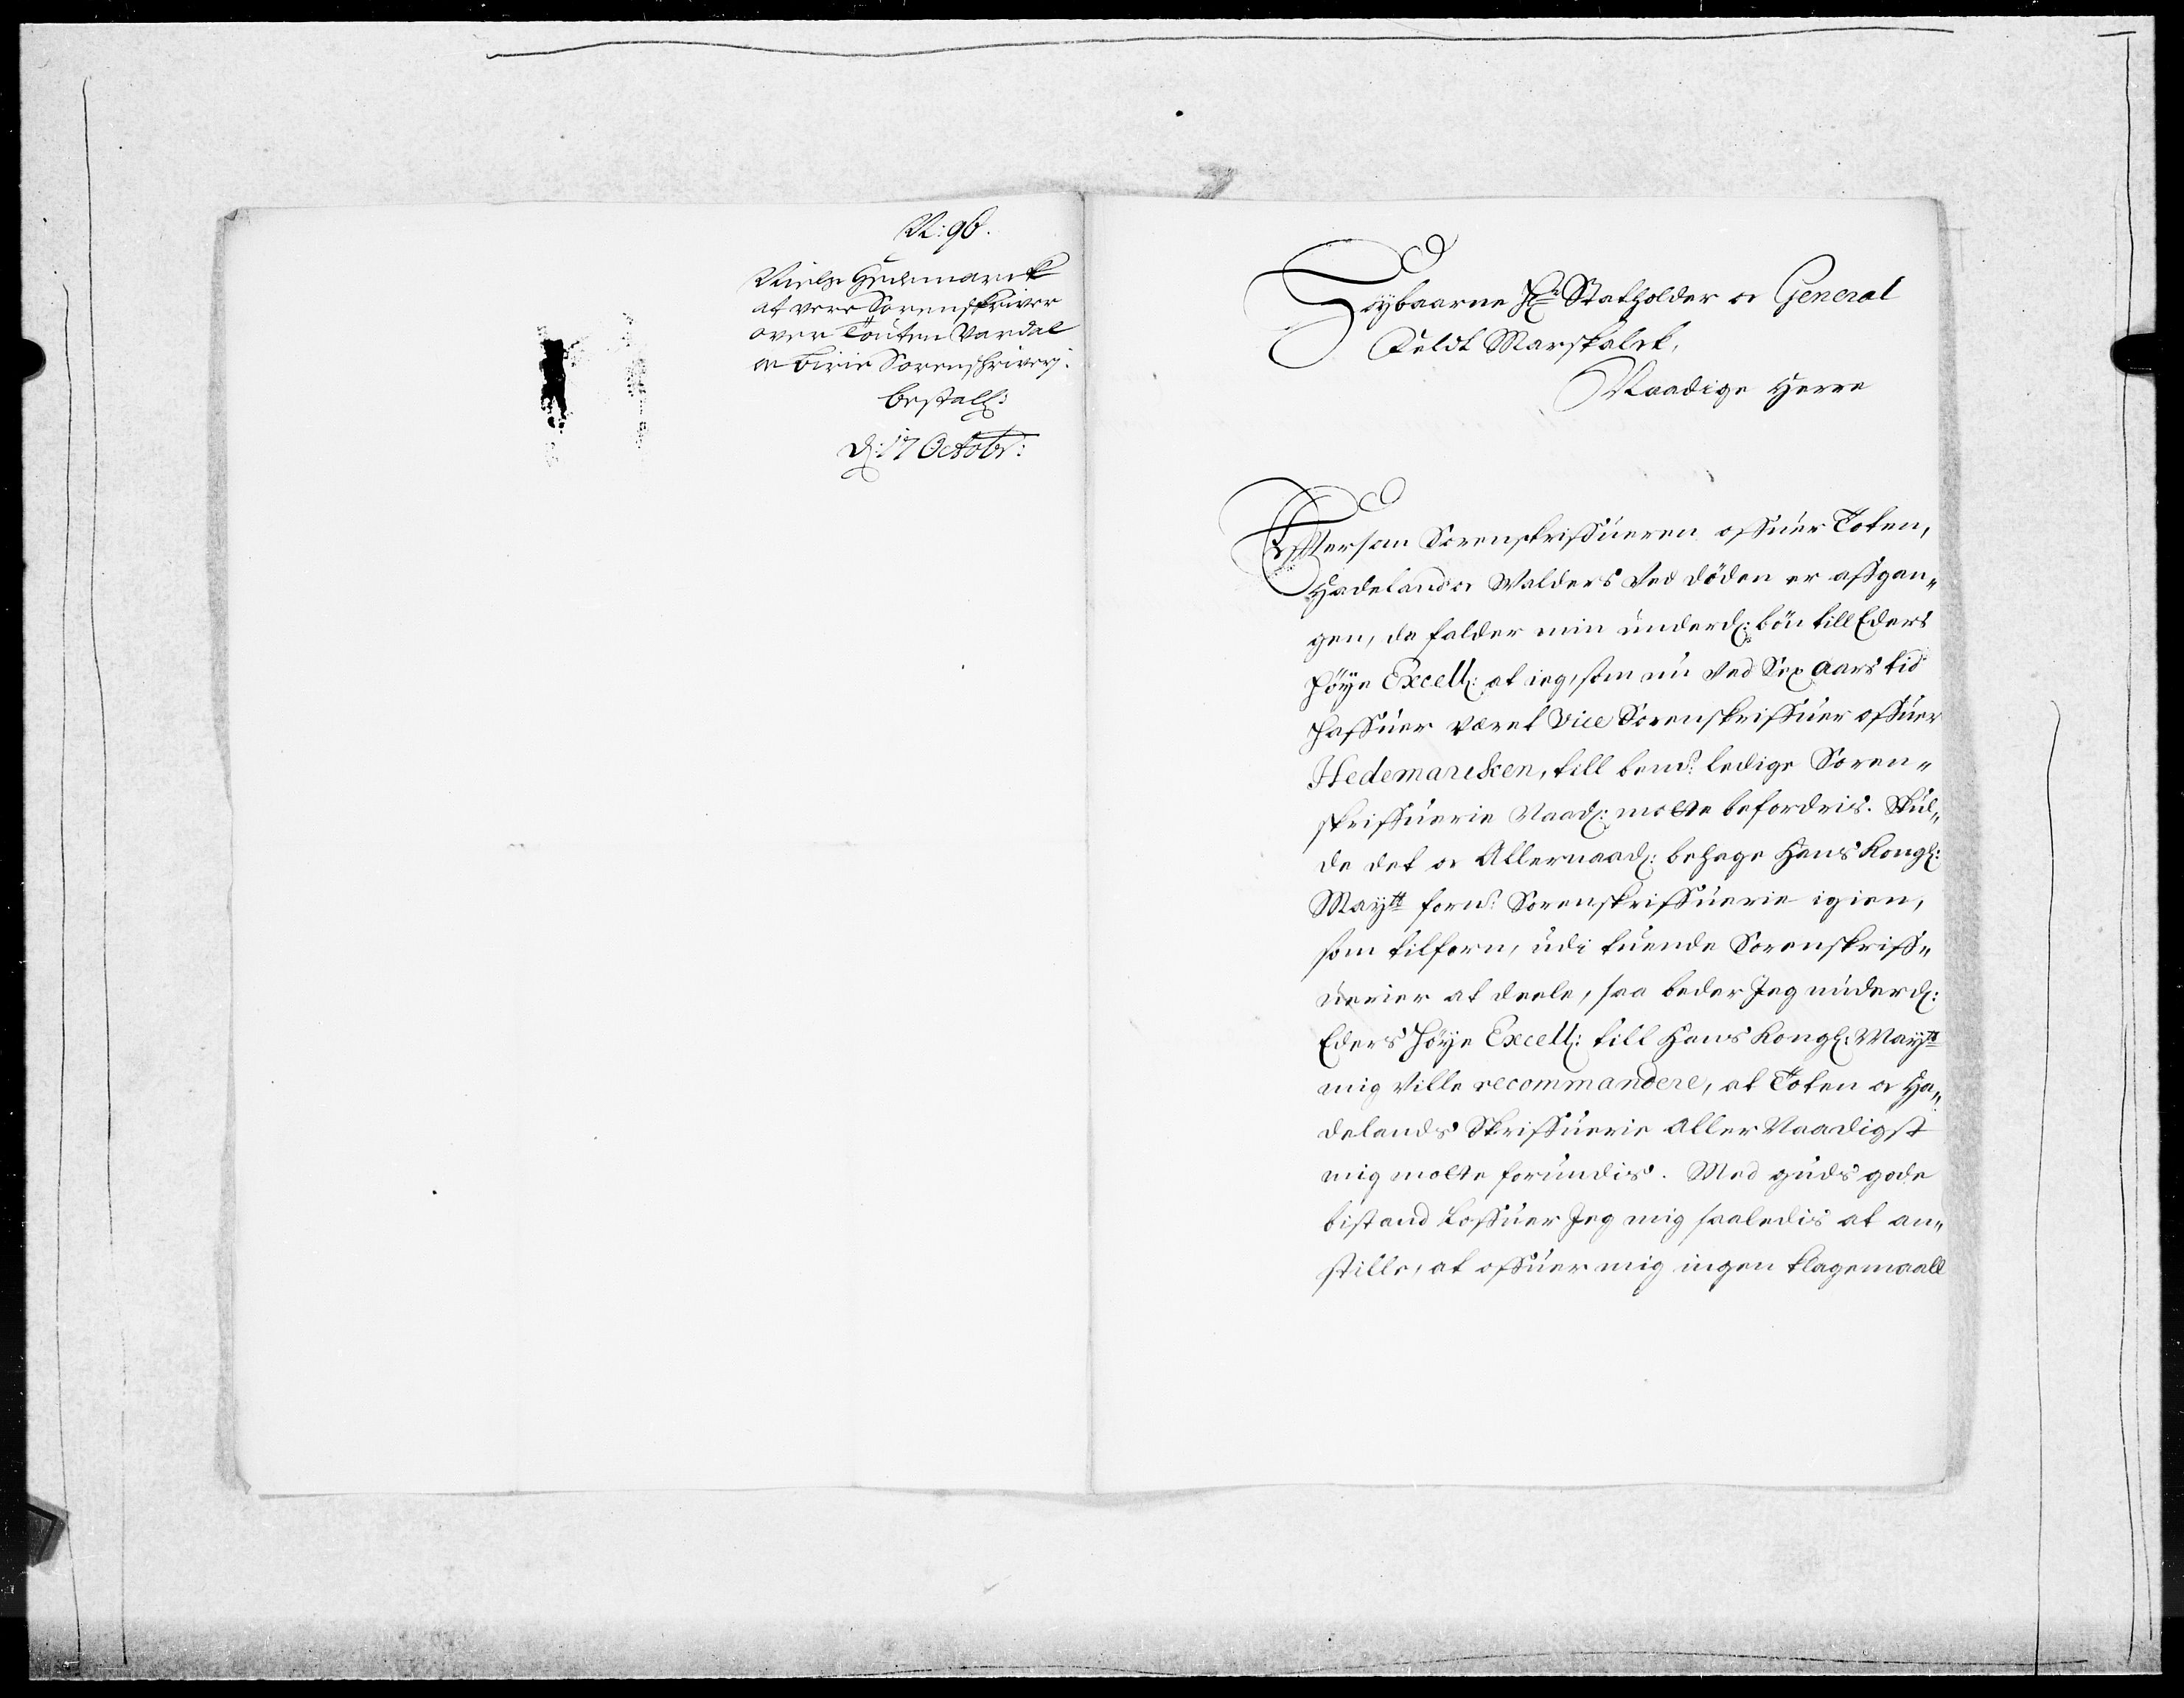 N: 96.
Niels Hedemarck
at vere Sorenskriver
over Touten Vardal
oc Birie Sorenschriverj.
bestall:
d: 17 Octobr:
Høybaarne Hr Statholder oc General
Feldt Marskalck,
Naadige Herre
Efftersom Sorenskriffueren offuer Toten,
Hadeland oc Walders ved døden er affgan„
gen, da falder min underd: bøn till Eders
Høye Excell: at ieg, som nu ved Sex aars tid
haffuer veret Vice Sorenskriffuer offuer
Hedemarcken, till bemt: ledige Soren„
skriffuerie Naad: motte befordris. Skul„
de det oc Allernaad: behage Hans Kongl:
Maytt fornt: Sorenskriffuerie igien,
som tilforn, udi tuende Sorenskriff„
uerier at deele, saa beder Jeg underd:
Eders Høye Excell: till Hans Kongl: Maytt
mig ville recommandere, at Toten oc Ha„
delands Skriffuerie aller Naadigst
mig motte forundis. Med guds gode
bistand loffuer Jeg mig saaledis at an„
stille, at offuer mig ingen klagemaall